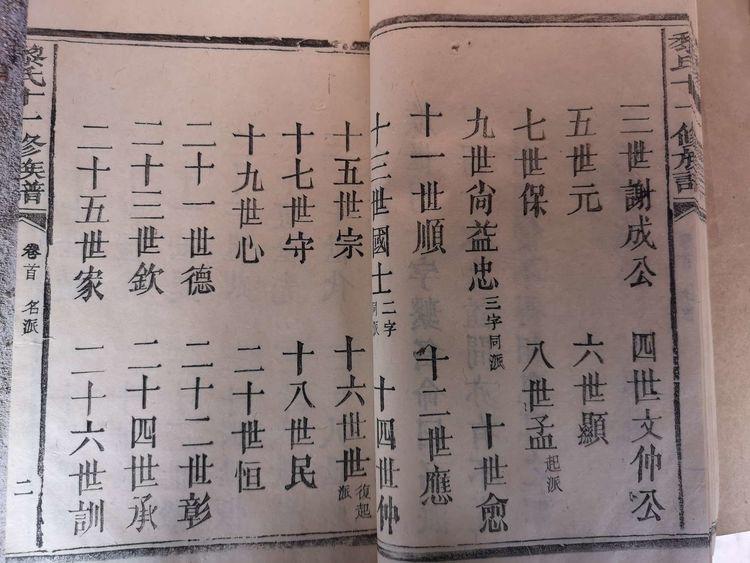 黎氏十一修族譜
三世謝成公 四世文仲公
五世元 六世顯
七世保 八世孟起派
九世尚益忠三字同派 十世愈
十一世順 十二世應
十三世國士二字同派 十四世仲
十五世宗 十六世世復起派
十七世守 十八世民
十九世心 二十世恒
二十一世德 二十二世彰
二十三世欽 二十四世承
二十五世家 二十六世訓
黎氏十一修族普 卷首 名派 二